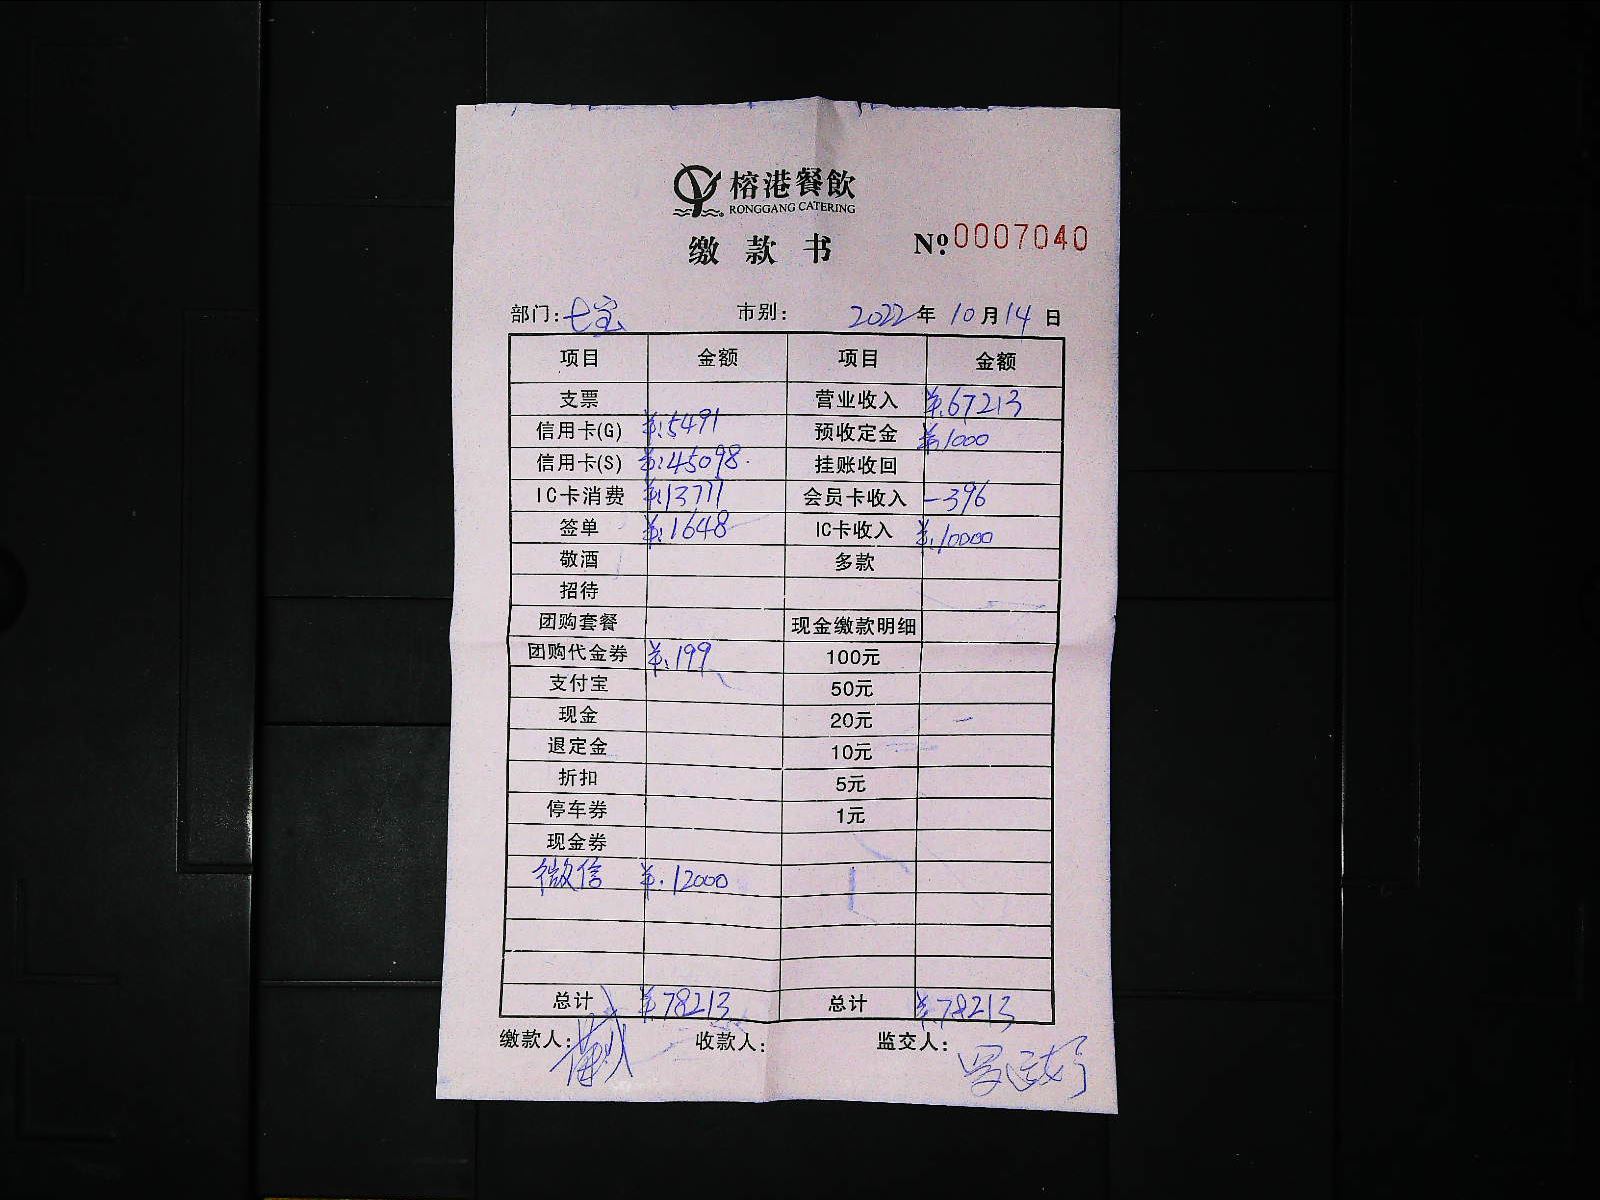 榕港餐飲
RONGGANG CATERING
缴款书 Nº:0007040
部门:七宝 市别: 2022年10月14日
项目 金额 项目 金额
支票 营业收入 ¥:67213
信用卡(G) ¥:5491 预收定金 ¥:1000
信用卡(S) ¥:45098. 挂账收回
IC卡消费 ¥:13771 会员卡收入 -396
签单 ¥:1648 IC卡收入 ¥:10000
敬酒 多款
招待
团购套餐 现金缴款明细
团购代金券 ¥:199 100元
支付宝 50元
现金 20元
退定金 10元
折扣 5元
停车券 1元
现金券
微信 ¥:12000
总计 ¥:78213 总计 ¥:78213
缴款人: 收款人: 监交人: